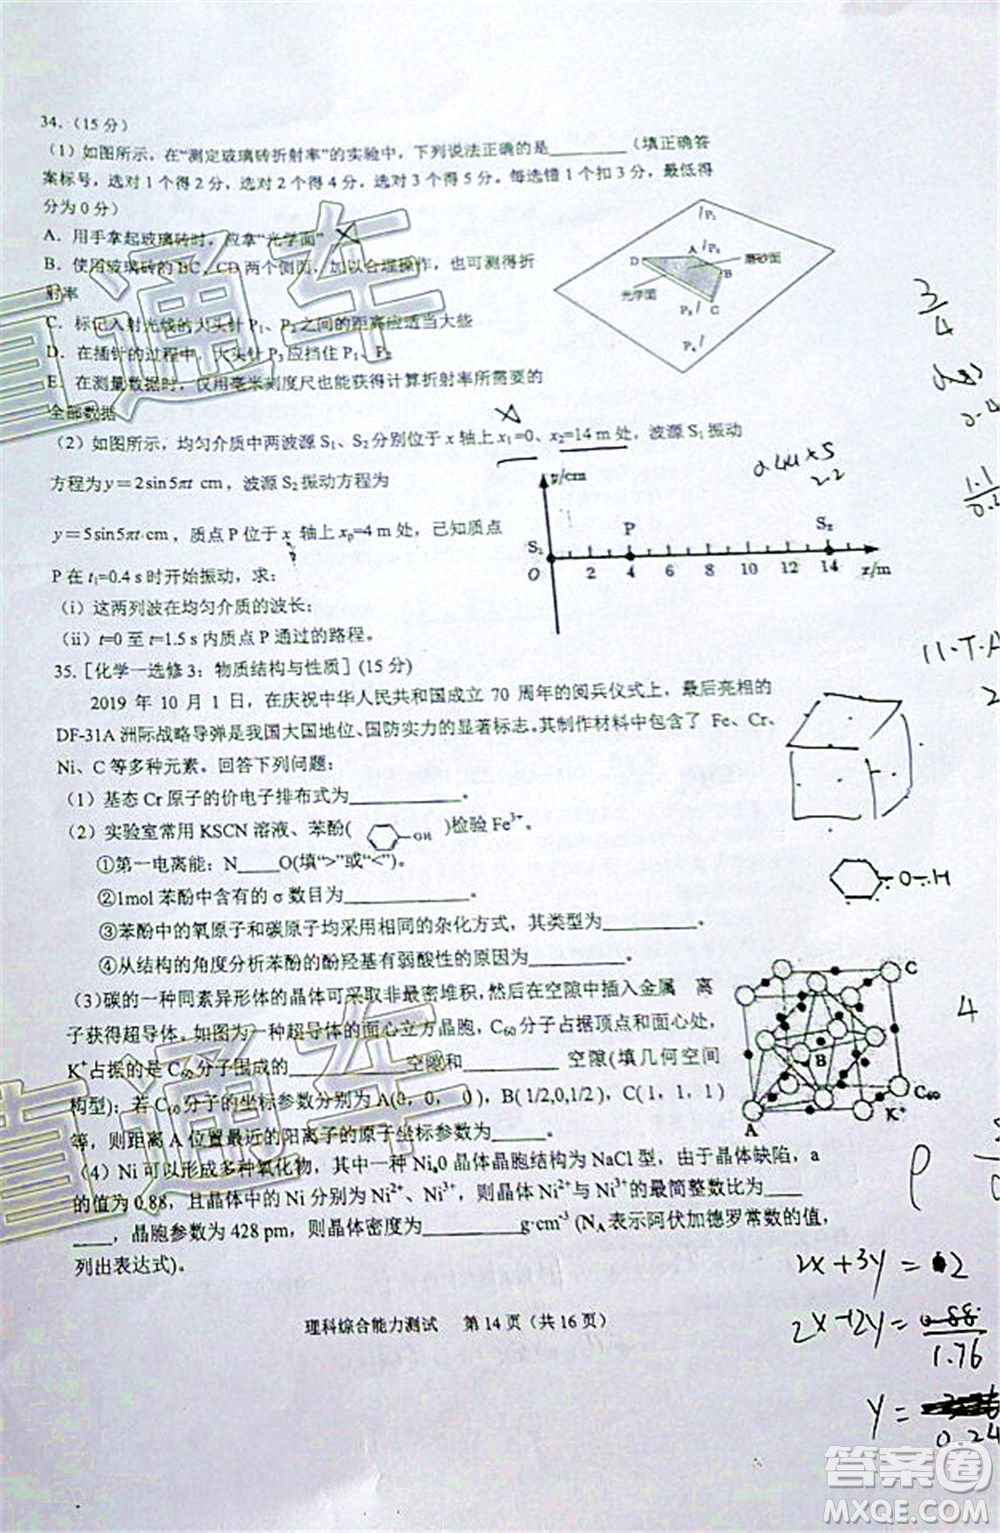 34.（15 分）
（1）如图所示，在“测定玻璃砖折射率”的实验中，下列说法正确的是________（填正确答
案标号，选对 1 个得 2 分，选对 2 个得 4 分，选对 3 个得 5 分。每选错 1 个扣 3 分，最低得
分为 0 分）
A．用手拿起玻璃砖时，应拿“光学面”
B．使用玻璃砖的 BC、CD 两个侧面，加以合理操作，也可测得折
射率
C．标记入射光线的大头针 P₁、P₂之间的距离应适当大些
D．在插针的过程中，大头针 P₃应挡住 P₁、P₂
E．在测量数据时，仅用毫米刻度尺也能获得计算折射率所需的
全部数据
P₁
P₂
A
D
B
磨砂面
光学面
P₃
C
P₄
（2）如图所示，均匀介质中两波源 S₁、S₂分别位于 x 轴上 x₁=0、x₂=14 m 处，波源 S₁振动
方程为 y＝2sin5πt cm，波源 S₂振动方程为
y＝5sin5πt cm，质点 P 位于 x 轴上 xₚ=4 m 处，已知质点
P 在 t₁=0.4 s 时开始振动，求：
（i）这两列波在均匀介质的波长；
（ii）t=0 至 t=1.5 s 内质点 P 通过的路程。
y/cm
P S₂
O 2 4 6 8 10 12 14 x/m
35.［化学一选修 3：物质结构与性质］(15 分)
2019 年 10 月 1 日，在庆祝中华人民共和国成立 70 周年的阅兵仪式上，最后亮相的
DF-31A 洲际战略导弹是我国大国地位、国防实力的显著标志。其制作材料中包含了 Fe、Cr、
Ni、C 等多种元素。回答下列问题：
（1）基态 Cr 原子的价电子排布式为____________。
（2）实验室常用 KSCN 溶液、苯酚( OH )检验 Fe³⁺。
①第一电离能：N_____O(填“>”或“<”)。
②1mol 苯酚中含有的 σ 数目为__________。
③苯酚中的氧原子和碳原子均采用相同的杂化方式，其类型为_________。
④从结构的角度分析苯酚的酚羟基有弱酸性的原因为_________。
（3)碳的一种同素异形体的晶体可采取非最密堆积,然后在空隙中插入金属 离
子获得超导体。如图为一种超导体的面心立方晶胞，C₆₀分子占据顶点和面心处，
K⁺占据的是 C₆₀分子围成的____________空隙和____________ 空隙(填几何空间
构型)；若 C₆₀分子的坐标参数分别为 A(0，0， 0)，B( 1/2,0,1/2)，C(1，1，1)
等，则距离 A 位置最近的阳离子的原子坐标参数为______。
C
B
C₆₀
A K⁺
（4）Ni 可以形成多种氧化物，其中一种 NiₐO 晶体晶胞结构为 NaCl 型，由于晶体缺陷，a
的值为 0.88，且晶体中的 Ni 分别为 Ni²⁺、Ni³⁺，则晶体中 Ni²⁺与 Ni³⁺的最简整数比为____
____，晶胞参数为 428 pm，则晶体密度为__________g·cm⁻³ (Nₐ表示阿伏加德罗常数的值，
列出表达式)。
理科综合能力测试 第 14 页（共 16 页）
3/4
O H
4
ρ
2x+3y=2
y=
0.24
答案圈
MXQE.COM